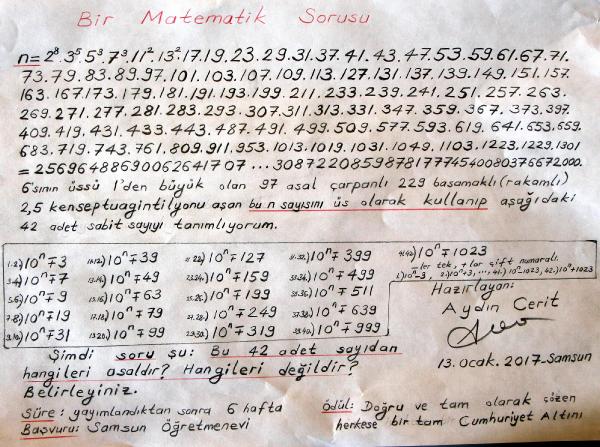 Bir Matematik Sorusu
n=2⁸.3⁵.5³.7³.11².13².17.19.23.29.31.37.41.43.47.53.59.61.67.71.
73.79.83.89.97.101.103.107.109.113.127.131.137.139.149.151.157.
163.167.173.179.181.191.193.199.211.233.239.241.251.257.263.
269.271.277.281.283.293.307.311.313.331.347.359.367.373.397.
409.419.431.433.443.487.491.499.509.577.593.619.641.653.659.
683.719.743.761.809.911.953.1013.1019.1031.1049.1103.1223.1229.1301
=25696488690062641707...308722085987817774540080376672000.
6'sının üssü 1'den büyük olan 97 asal çarpanlı 229 basamaklı (rakamlı)
2,5 kenseptuagintilyonu aşan bu n sayısını üs olarak kullanıp aşağıdaki
42 adet sabit sayıyı tanımlıyorum.
1.2.) 10ⁿ∓3 11.12.) 10ⁿ∓39 21.22.) 10ⁿ∓127 31.32.) 10ⁿ∓399 41.42.) 10ⁿ∓1023
3.4.) 10ⁿ∓7 13.14.) 10ⁿ∓49 23.24.) 10ⁿ∓159 33.34.) 10ⁿ∓499 -ler tek, +lar çift numaralı.
5.6.) 10ⁿ∓9 15.16.) 10ⁿ∓63 25.26.) 10ⁿ∓199 35.36.) 10ⁿ∓511 1.) 10ⁿ-3, 2.) 10ⁿ+3, ..., 41.) 10ⁿ-1023, 42.) 10ⁿ+1023
7.8.) 10ⁿ∓19 17.18.) 10ⁿ∓79 27.28.) 10ⁿ∓249 37.38.) 10ⁿ∓639
9.10.) 10ⁿ∓31 19.20.) 10ⁿ∓99 29.30.) 10ⁿ∓319 39.40.) 10ⁿ∓999
Hazırlayan:
Aydın Cerit
13.Ocak.2017-Samsun
Şimdi soru şu: Bu 42 adet sayıdan
hangileri asaldır? Hangileri değildir?
Belirleyiniz.
Süre: yayımlandıktan sonra 6 hafta
Başvuru: Samsun Öğretmenevi
Ödül: Doğru ve tam olarak çözen
herkese bir tam Cumhuriyet Altını